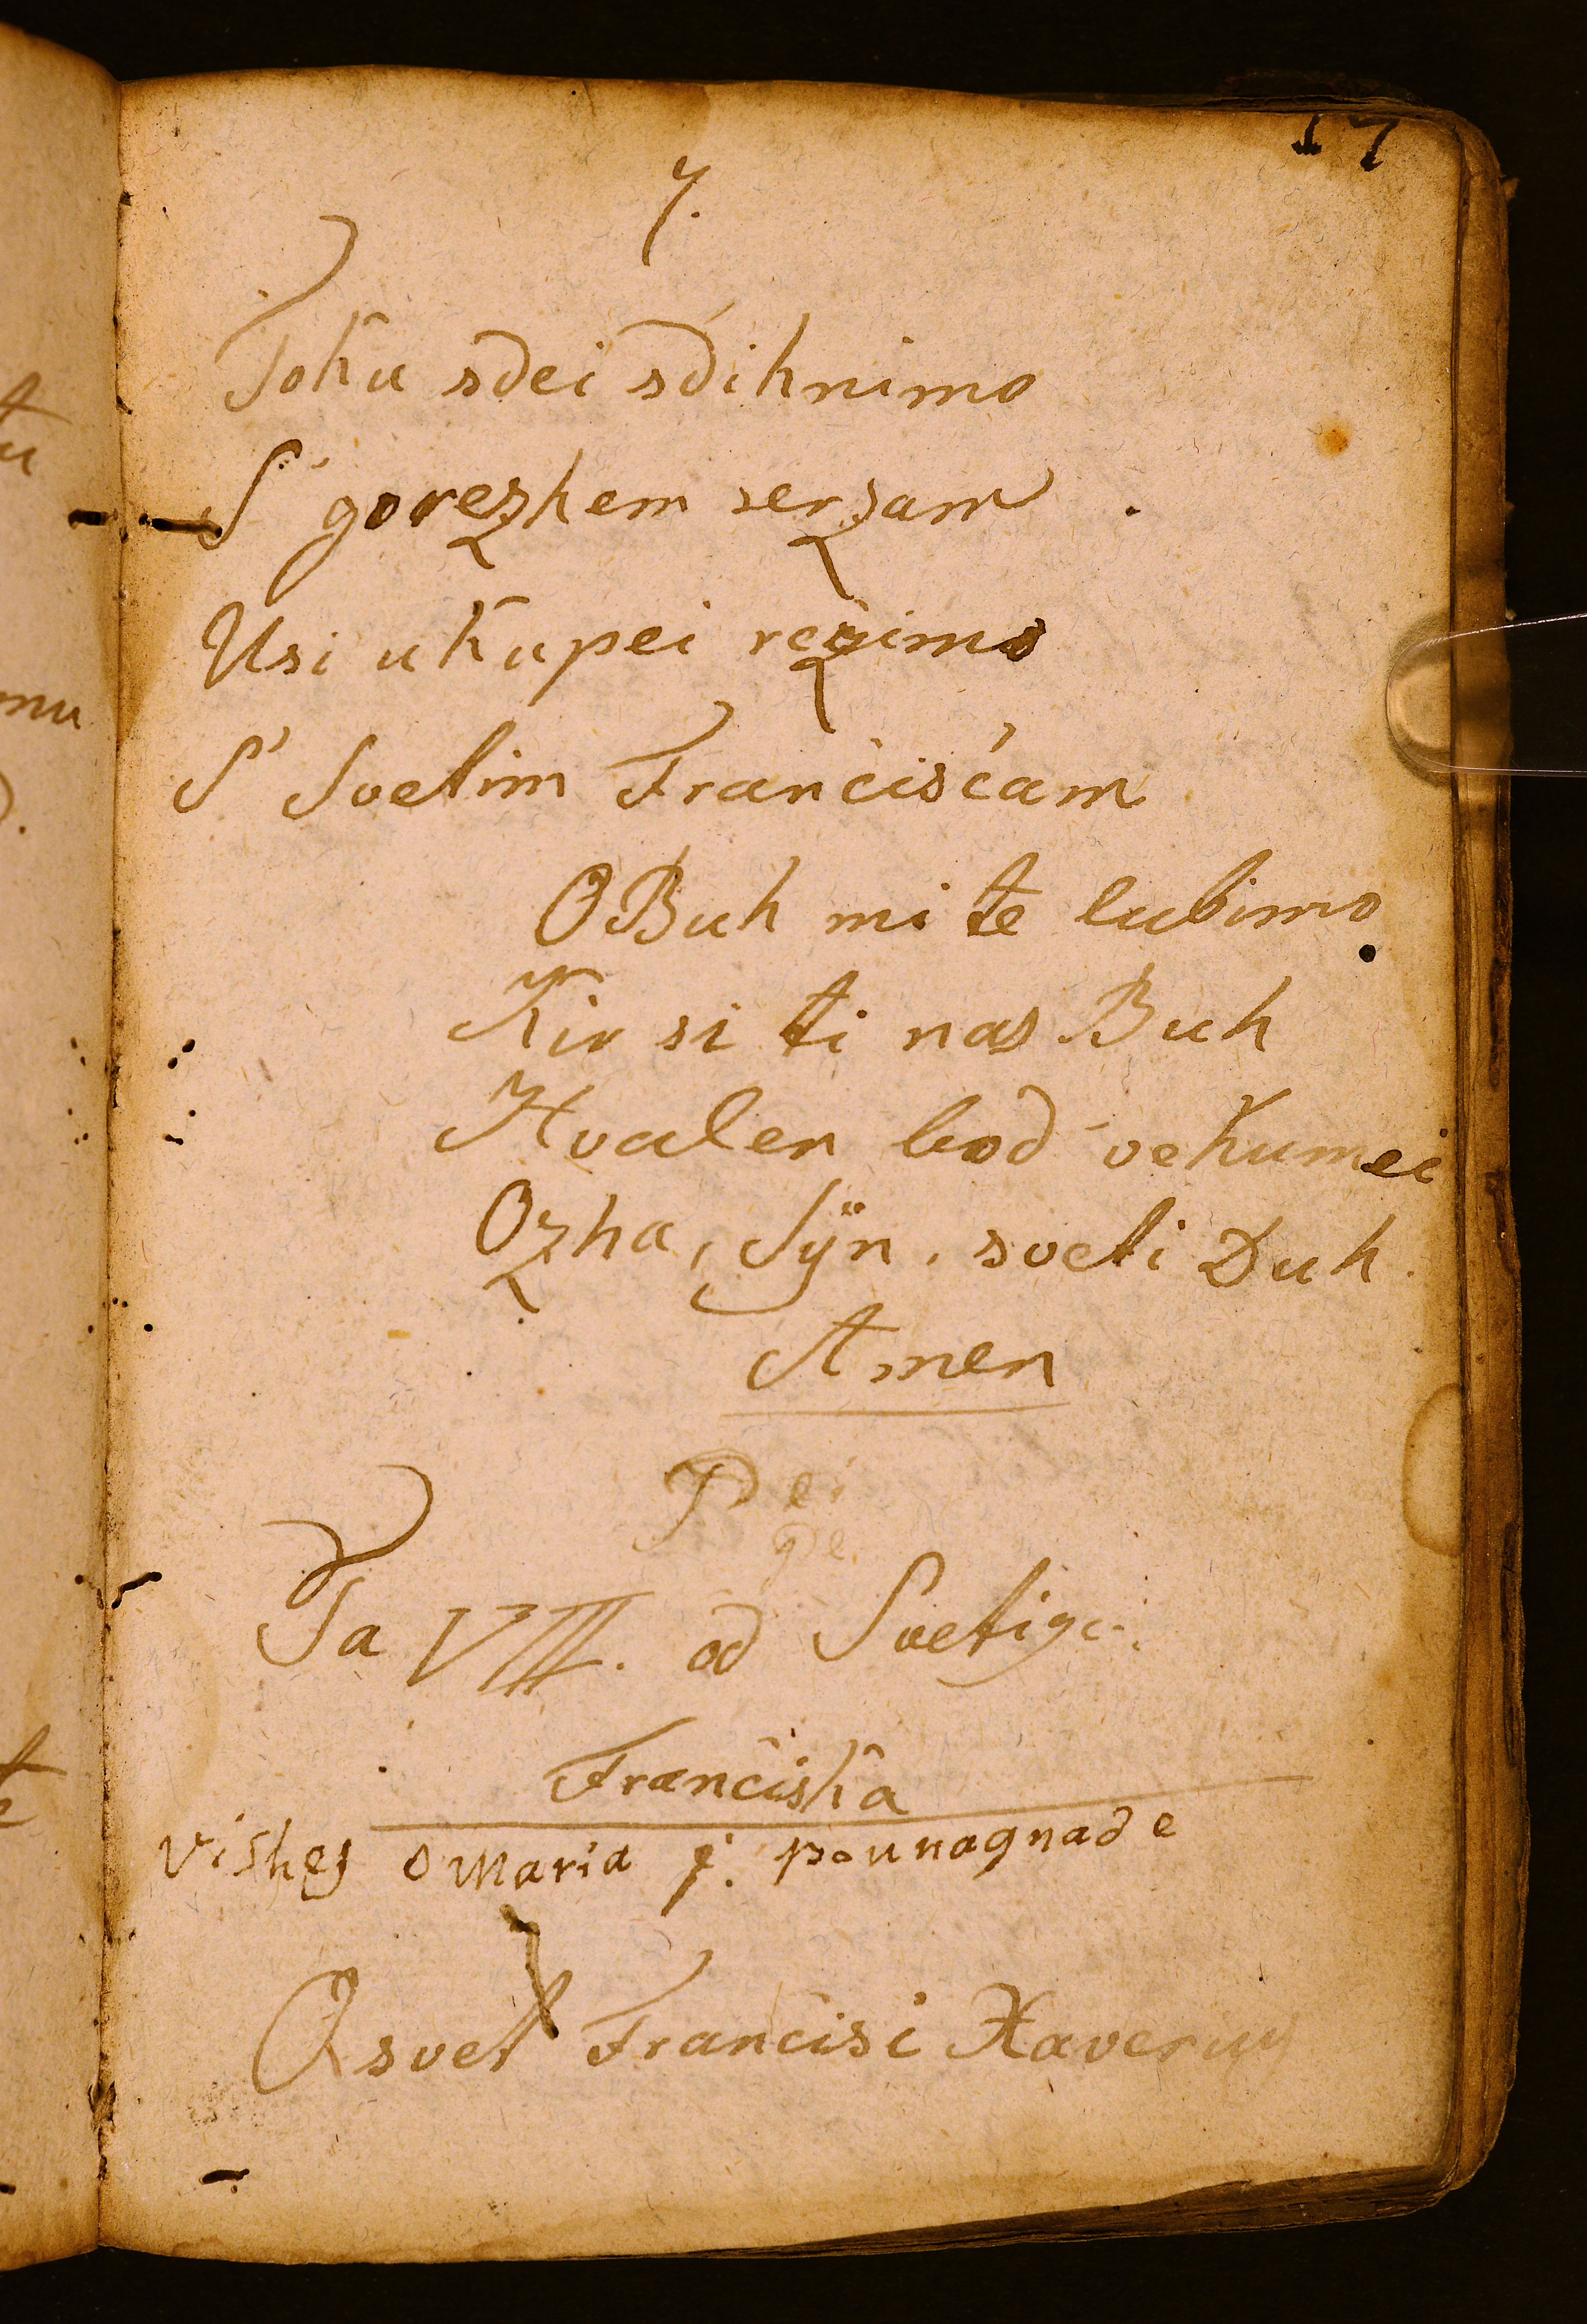 17
7.
Toku sdei sdihnimo
S' gorezhem serzam
Usi ukupei rezimo
S' Svetim Francisćam
O Buh mi te lubimo
Kir si ti nas Buh
Hvalen bod vekumei
Ozha, Sÿn, sveti Duh
Amen
Pei
Ta VIII. od Svetiga
Franciska
Vishes o Maria j. pounagnade
O svet Francisi Xaverius